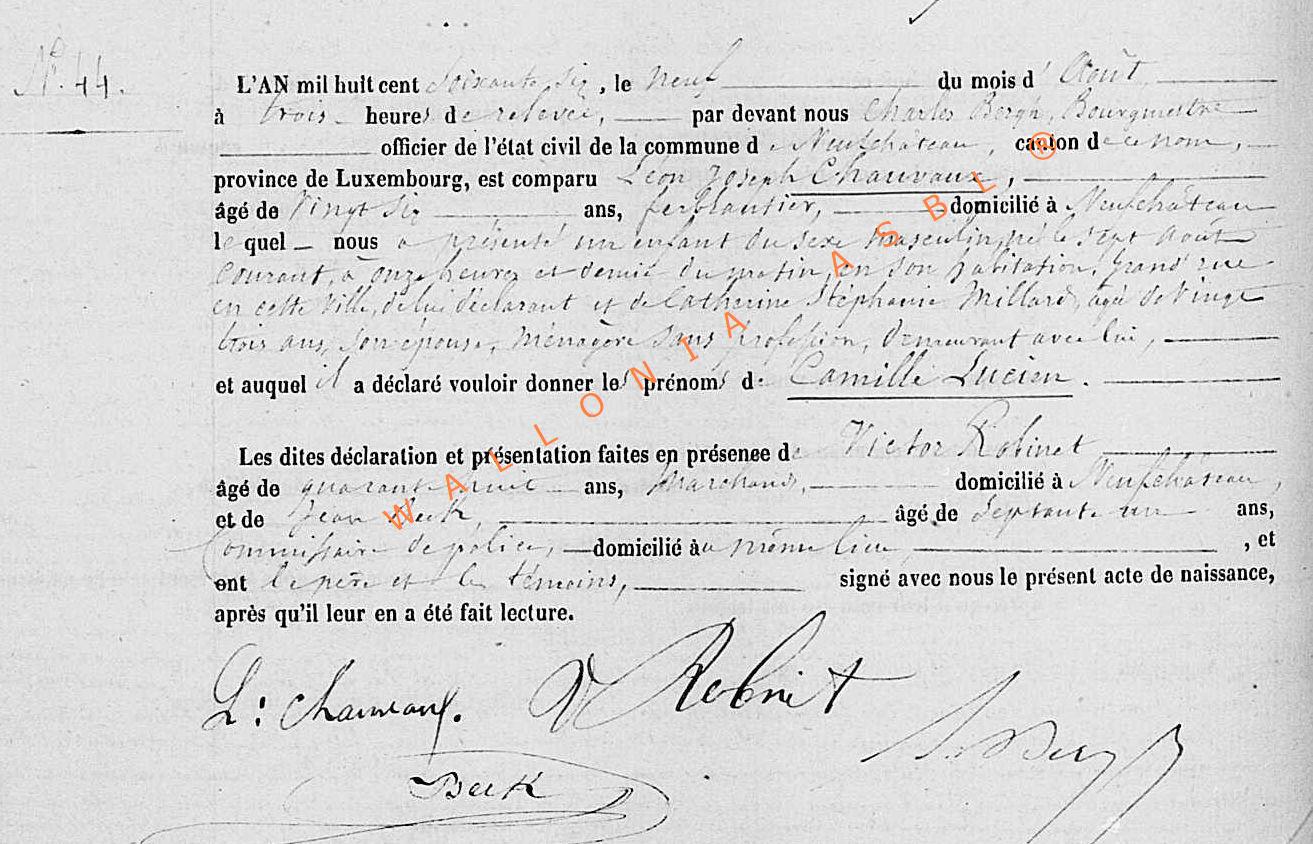 N° 44.
L'AN mil huit cent soixante six, le neuf du mois d'Août
à trois heures de relevée, par devant nous Charles Bergh, Bourgmestre
officier de l'état civil de la commune de Neufchâteau, canton de ce nom,
province de Luxembourg, est comparu Léon Joseph Chauvaux,
âgé de vingt six ans, ferblantier, domicilié à Neufchâteau
lequel nous a présenté un enfant du sexe masculin, né le sept Août
courant, à onze heures et demie du matin, en son habitation, grand'rue
en cette ville, de lui déclarant et de Catherine Stéphanie Millard, âgée de vingt
trois ans, son épouse, ménagère sans profession, demeurant avec lui,
et auquel il a déclaré vouloir donner les prénoms de Camille Lucien.
Les dites déclaration et présentation faites en présence de Victor Robinet
âgé de quarante huit ans, marchand, domicilié à Neufchâteau,
et de Jean Beck, âgé de septante un ans,
Commissaire de police, domicilié au même lieu, , et
ont le père et les témoins, signé avec nous le présent acte de naissance,
après qu'il leur en a été fait lecture.
L: Chauvaux. V Robinet
Beck
WALLONIA ASBL ®